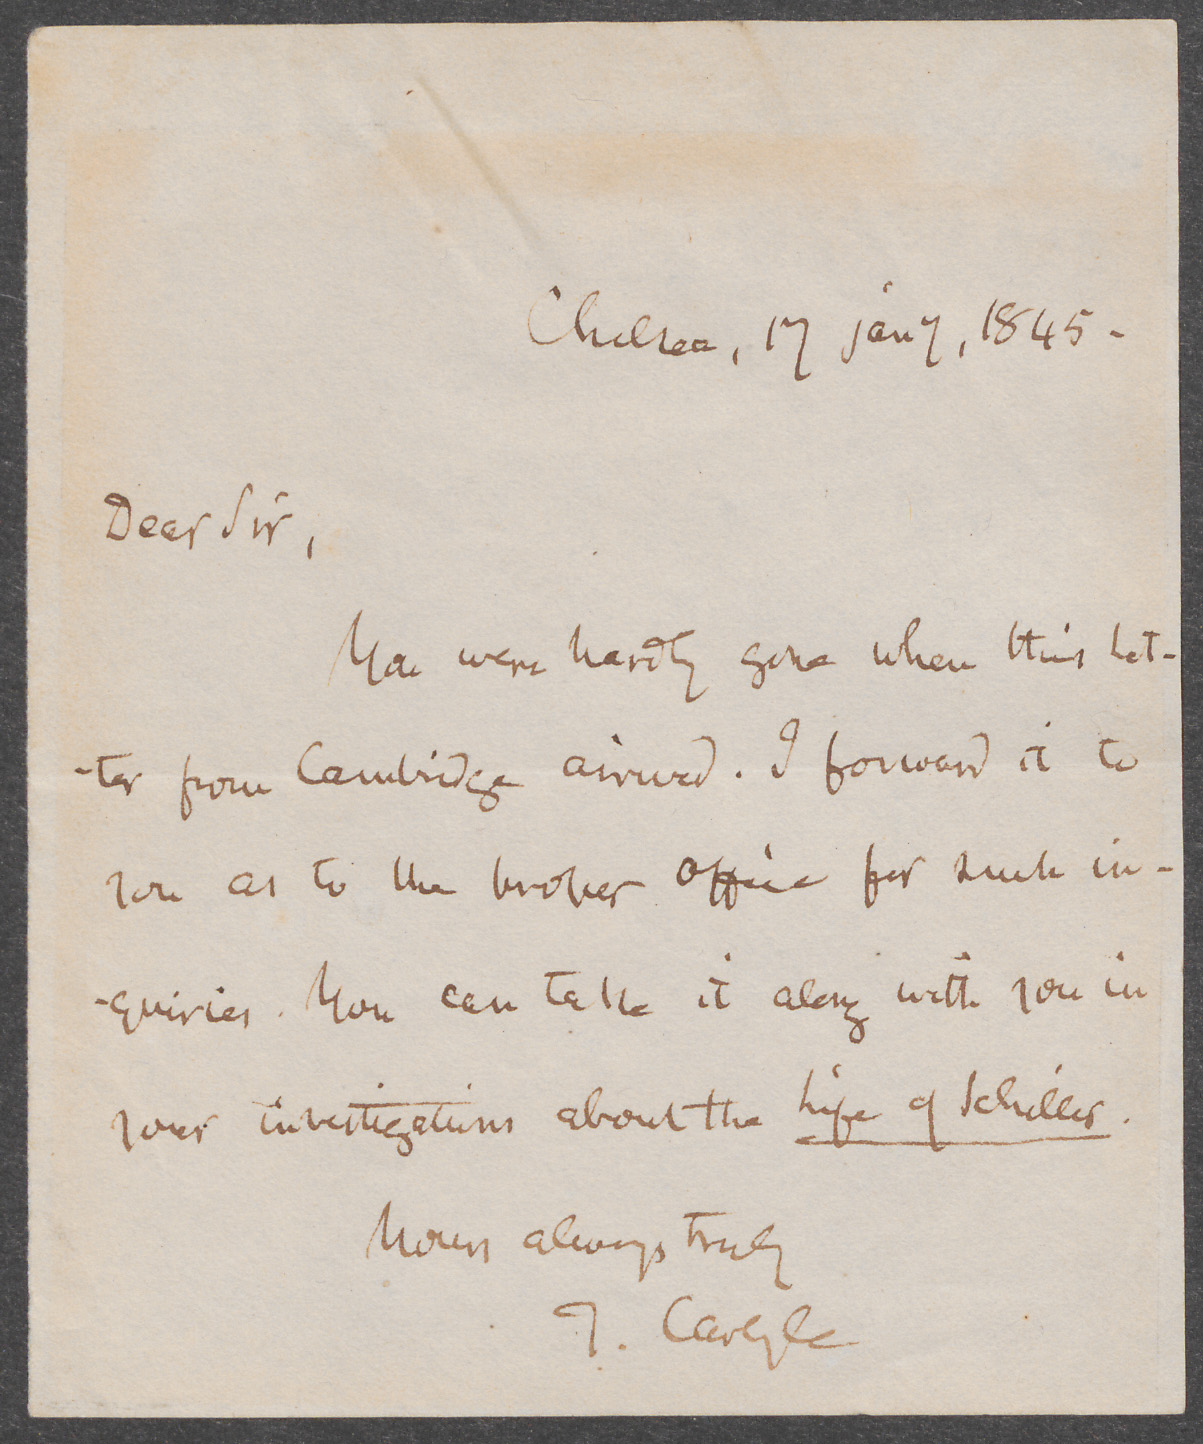 Chelsea, 17 jany, 1845 -
Dear Sir,
You were hardly gone when this let-
-ter from Cambridge arrived. I forward it to
you as to the proper office for such in-
-quiries. You can take it along with you in
your investigations about the Life of Schiller.
Yours always truly
T. Carlyle